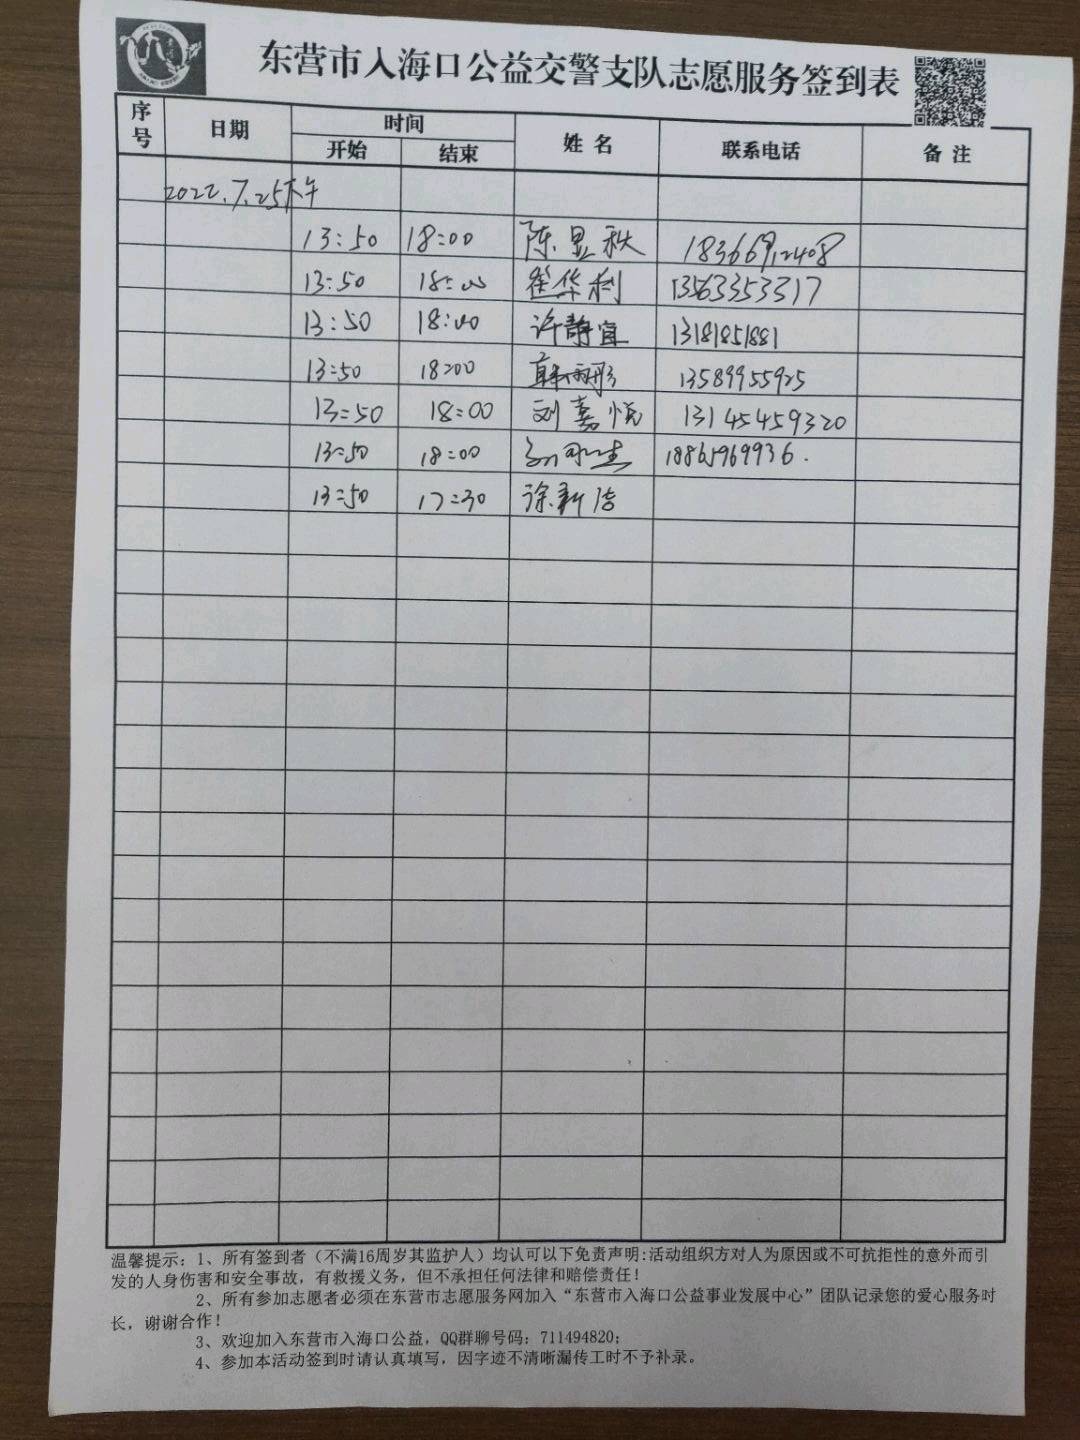 东营市入海口公益交警支队志愿服务签到表
序号 日期 时间 姓名 联系电话 备注
开始 结束
2022.7.25下午
13:50 18:00 陈显秋 18366912408
13:50 18:00 崔华利 13563353317
13:50 18:00 许静宜 13181851881
13:50 18:00 韩雨彤 13589955925
13:50 18:00 刘嘉悦 13145459320
13:50 18:00 18865969936.
13:50 17:30 徐新洁
温馨提示：1、所有签到者（不满16周岁其监护人）均认可以下免责声明:活动组织方对人为原因或不可抗拒性的意外而引
发的人身伤害和安全事故，有救援义务，但不承担任何法律和赔偿责任！
2、所有参加志愿者必须在东营市志愿服务网加入“东营市入海口公益事业发展中心”团队记录您的爱心服务时
长，谢谢合作！
3、欢迎加入东营市入海口公益，QQ群聊号码：711494820；
4、参加本活动签到时请认真填写，因字迹不清晰漏传工时不予补录。